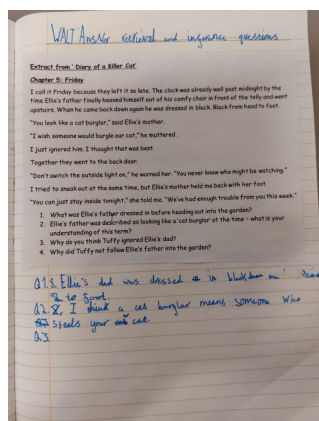 WALT Answer retrieval and inference questions
Extract from ' Diary of a Killer Cat'
Chapter 5: Friday
I call it Friday because they left it so late. The clock was already well past midnight by the
time Ellie's father finally heaved himself out of his comfy chair in front of the telly and went
upstairs. When he came back down again he was dressed in black. Black from head to foot.
"You look like a cat burglar," said Ellie's mother.
"I wish someone would burgle our cat," he muttered.
I just ignored him. I thought that was best.
Together they went to the back door.
"Don't switch the outside light on," he warned her. "You never know who might be watching."
I tried to sneak out at the same time, but Ellie's mother held me back with her foot.
"You can just stay inside tonight," she told me. "We've had enough trouble from you this week."
1. What was Ellie's father dressed in before heading out into the garden?
2. Ellie's father was described as looking like a 'cat burglar' at the time – what is your
understanding of this term?
3. Why do you think Tuffy ignored Ellie's dad?
4. Why did Tuffy not follow Ellie's father into the garden?
Q1. Ellie's dad was dressed in black
to foot.
Q2. I think a cat burglar means someone who
steals your cat.
Q3